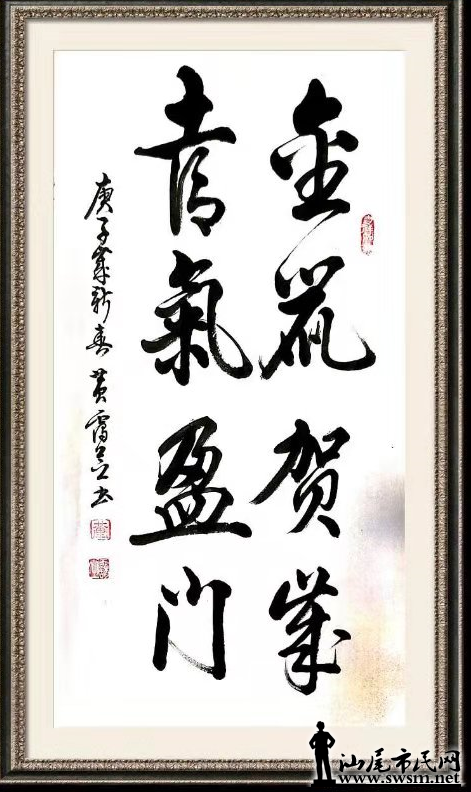 金鼠贺歲
喜氣盈门
庚子歲新春 黄书
汕尾市民网
www.swsm.net